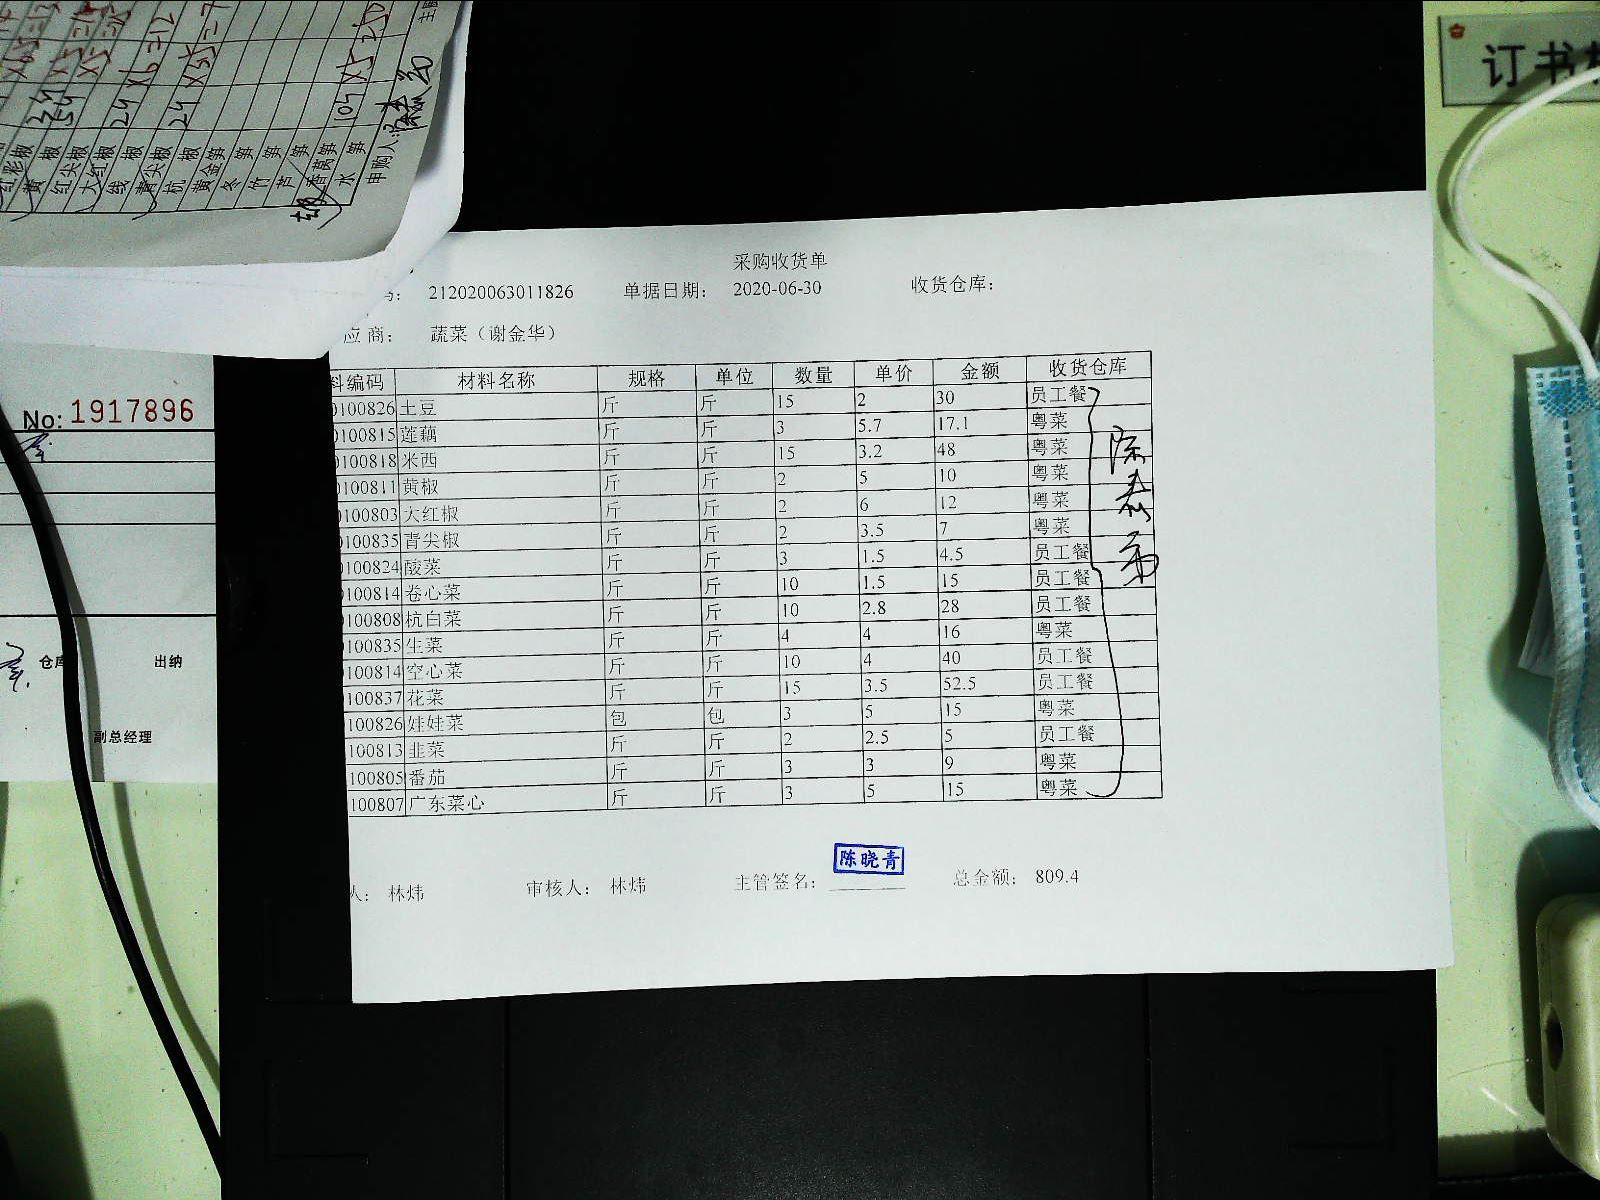 采购收货单
212020063011826 单据日期： 2020-06-30 收货仓库：
应商： 蔬菜（谢金华）
料编码 材料名称 规格 单位 数量 单价 金额 收货仓库
0100826 土豆 斤 斤 15 2 30 员工餐
0100815 莲藕 斤 斤 3 5.7 17.1 粤菜
0100818 米西 斤 斤 15 3.2 48 粤菜
0100811 黄椒 斤 斤 2 5 10 粤菜
0100803 大红椒 斤 斤 2 6 12 粤菜
0100835 青尖椒 斤 斤 2 3.5 7 粤菜
0100824 酸菜 斤 斤 3 1.5 4.5 员工餐
0100814 卷心菜 斤 斤 10 1.5 15 员工餐
0100808 杭白菜 斤 斤 10 2.8 28 员工餐
0100835 生菜 斤 斤 4 4 16 粤菜
0100814 空心菜 斤 斤 10 4 40 员工餐
100837 花菜 斤 斤 15 3.5 52.5 员工餐
100826 娃娃菜 包 包 3 5 15 粤菜
100813 韭菜 斤 斤 2 2.5 5 员工餐
100805 番茄 斤 斤 3 3 9 粤菜
100807 广东菜心 斤 斤 3 5 15 粤菜
陈晓青
人： 林炜 审核人： 林炜 主管签名： 总金额： 809.4
No: 1917896
仓库 出纳
副总经理
订书
红彩椒
黄椒
红尖椒
大红椒
线椒
青尖椒
杭椒
黄金笋
冬笋
竹笋
芦笋
香莴笋
水笋
申购人: